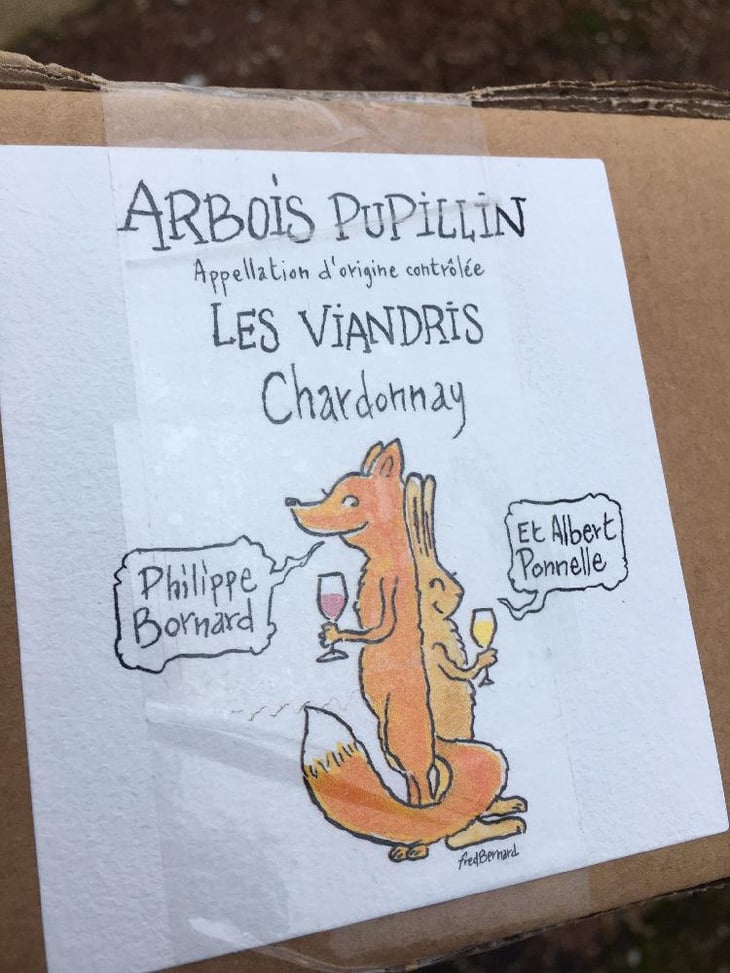 ARBOIS PUPILLIN
Appellation d'origine contrôlée
LES VIANDRIS
Chardonnay
Philippe
Bornard
Et Albert
Ponnelle
fred Bernard